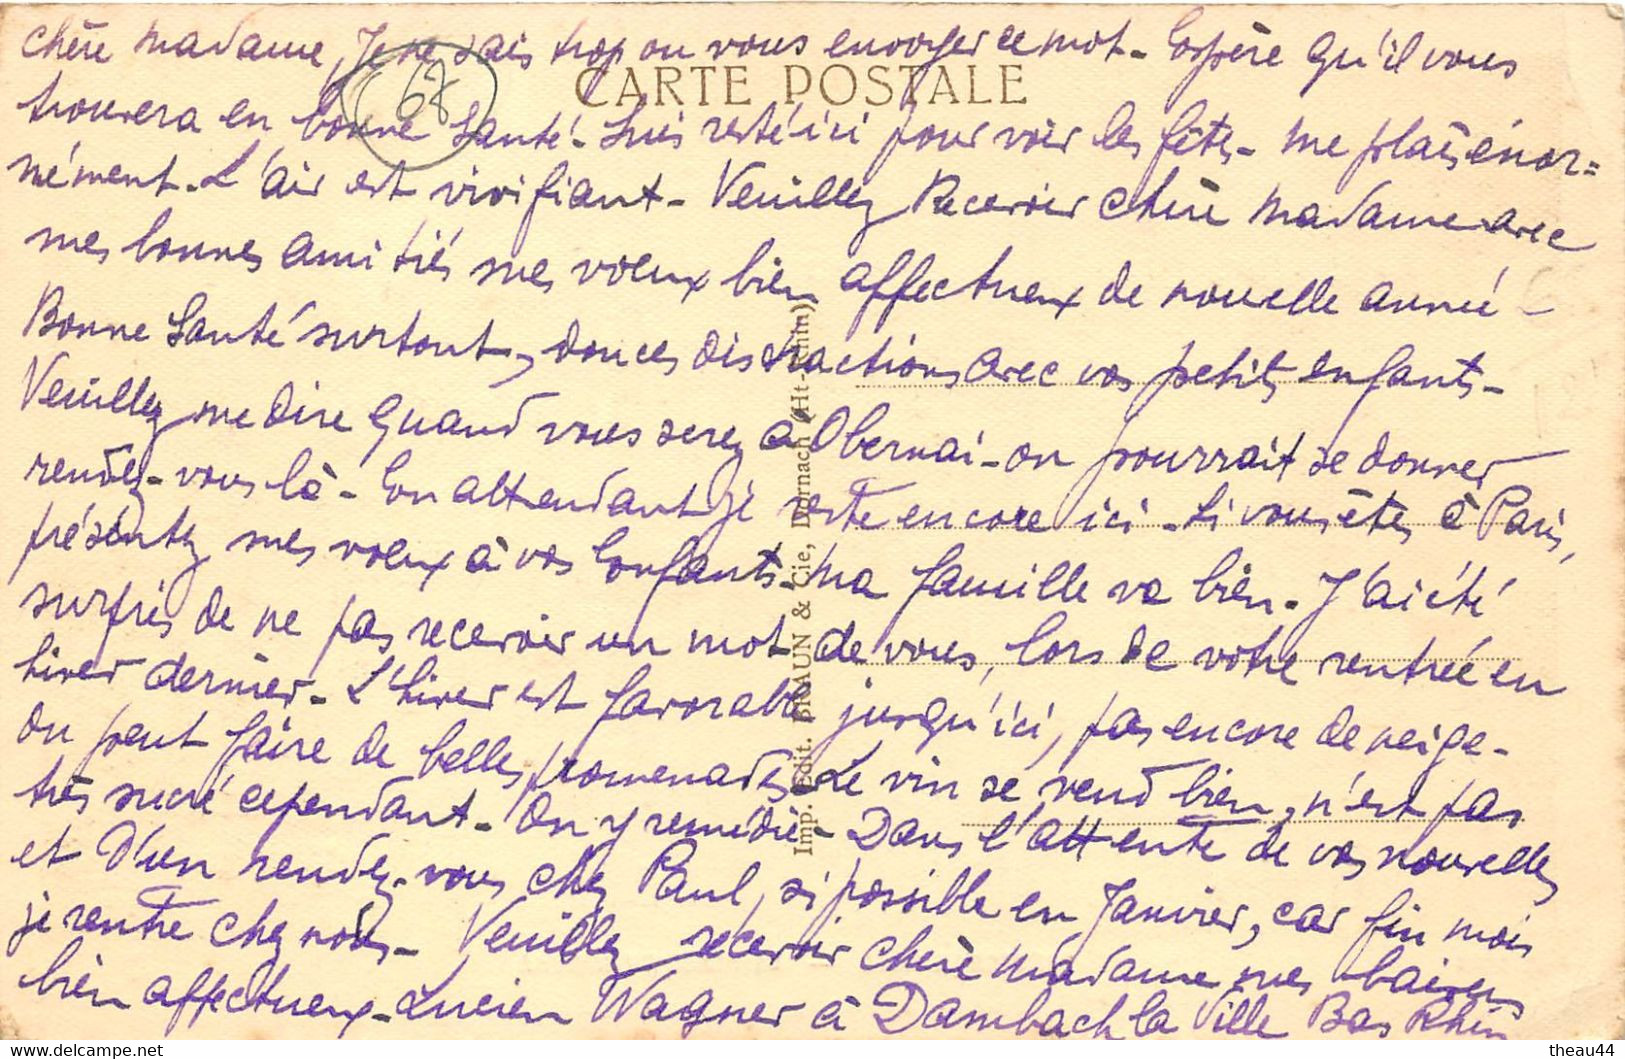 Chère Madame, Je ne sais trop ou vous envoyer ce mot - Espère qu'il vous
67
CARTE POSTALE
trouvera en bonne Santé - Suis resté ici pour voir les fêtes - Me plais énor=
mément - L'air est vivifiant - Veuillez Recevoir Chère Madame avec
mes bonnes amitiés mes voeux bien affectueux de nouvelle année -
Bonne Santé surtout, douces distractions avec vos petits enfants -
Veuillez me dire quand vous serez à Obernai - on pourrait se donner
rendez-vous là - En attendant je reste encore ici - Si vous êtes à Paris,
présentez mes voeux à vos Enfants - Ma famille va bien - J'ai été
surpris de ne pas recevoir un mot de vous, lors de votre rentrée en
hiver dernier - L'hiver est favorable jusqu'ici, pas encore de neige -
On peut faire de belles promenades - Le vin se vend bien, n'est pas
très sucré cependant - On y remédie - Dans l'attente de vos nouvelles
et d'un rendez-vous chez Paul, si possible en Janvier, car fin mois
je rentre chez nous - Veuillez recevoir Chère Madame mes baisers
bien affectueux - Lucien Wagner à Dambach la Ville Bas Rhin
Imp. Edit. BRAUN & Cie, Dornach (Ht-Rhin)
theau44